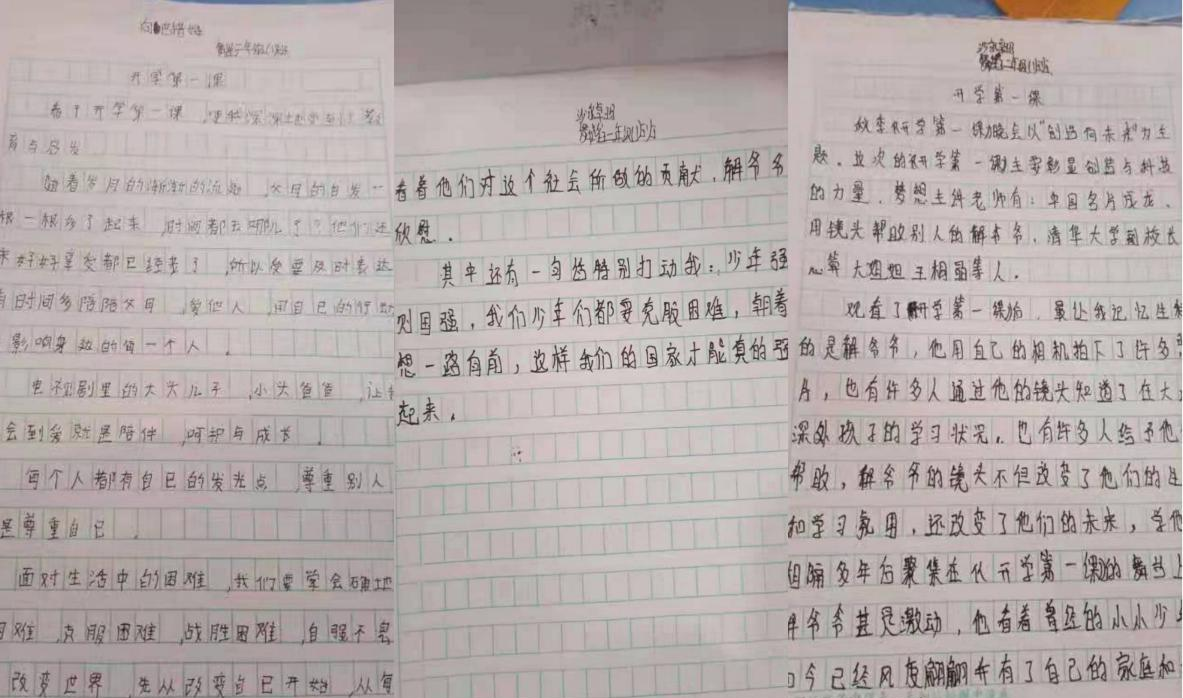 开学第一课
看了开学第一课，使我深深地受与
育与启发
随着岁月的渐渐的流逝，父母的白发一
根一根多了起来，时间都去哪儿了？他们还
未好好享受都已经老了，所以爱要及时表达
有时间多陪陪父母，爱他人，用自己的行动
影响身边的每一个人。
电视剧里的大头儿子，小头爸爸，让
会到爱就是陪伴，呵护与成长。
每个人都有自己的发光点，尊重别人
是尊重自己。
面对生活中的困难，我们要学会
困难，克服困难，战胜困难，自强不息
改变世界，先从改变自己开始，从每
看着他们对这个社会所做的贡献，解爷爷
欣慰。
其中还有一句话特别打动我：少年强
则国强，我们少年们都要克服困难，朝着
想一路向前，这样我们的国家才能真的强
起来。
开学第一课
秋季开学第一课晚会以“创造向未来”为主
题。这次的开学第一课主要彰显创造与科技
的力量，梦想主讲老师有：中国名片成龙、
用镜头帮助别人的解爷爷，清华大学副校长
大姐姐王相茹等人。
观看了开学第一课后，最让我记忆
的是解爷爷，他用自己的相机拍下了许多
片，也有许多人通过他的镜头知道了在大
深处孩子的学习状况。也有许多人给予他
帮助，解爷爷的镜头不但改变了他们的生
和学习氛围，还改变了他们的未来，当他
相隔多年后聚集在从开学第一课的舞台上
解爷爷甚是激动，他看着曾经的小小少
如今已经风度翩翩并有了自己的家庭和